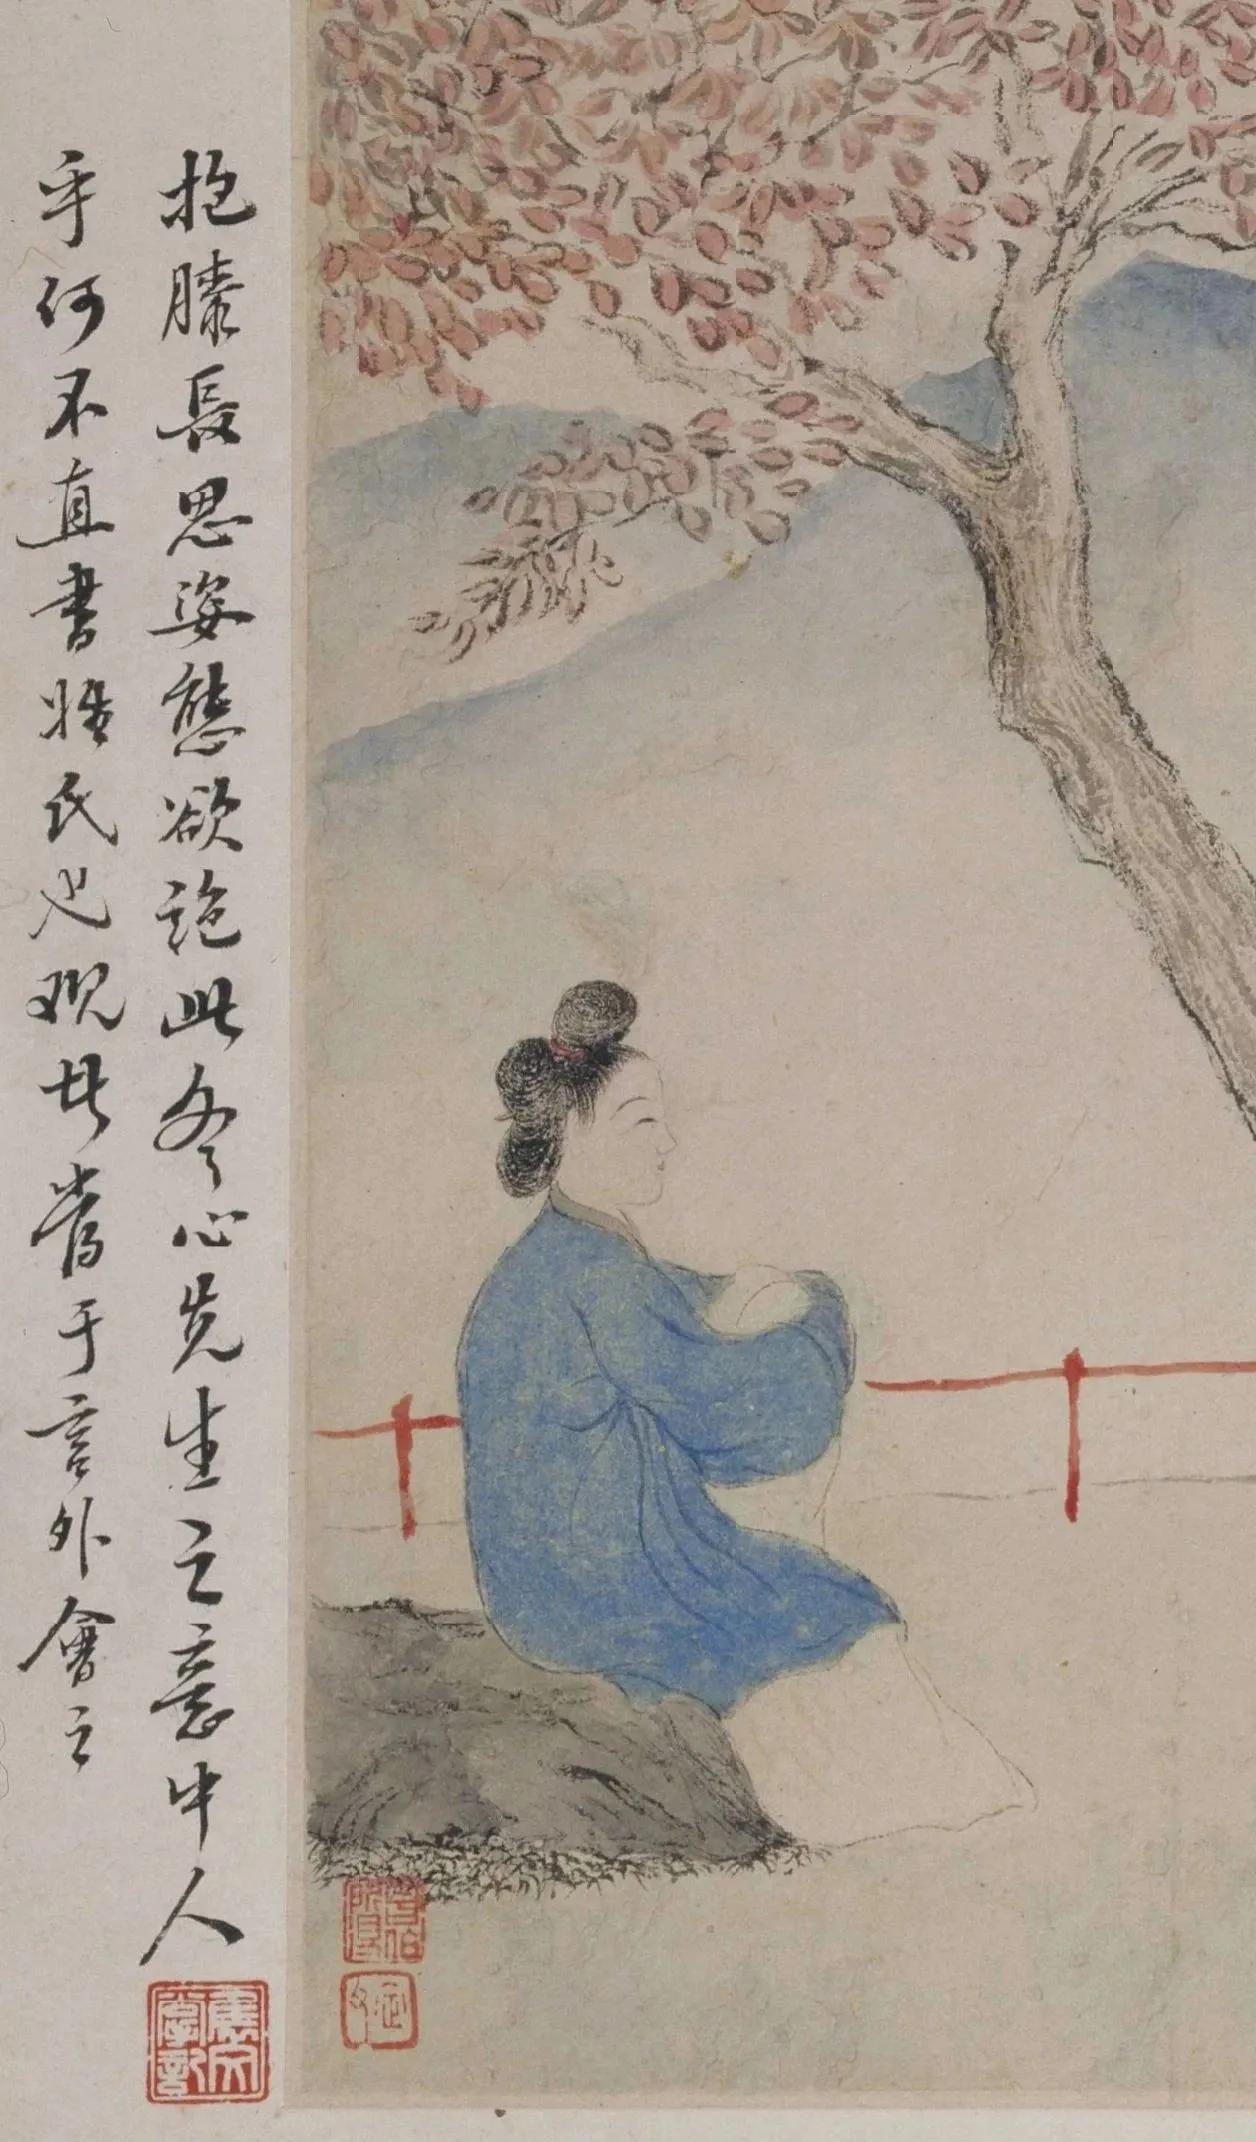 抱膝長思姿態欲絶此冬心先生之意中人
乎何不直書姓氏也观者當于言外會之